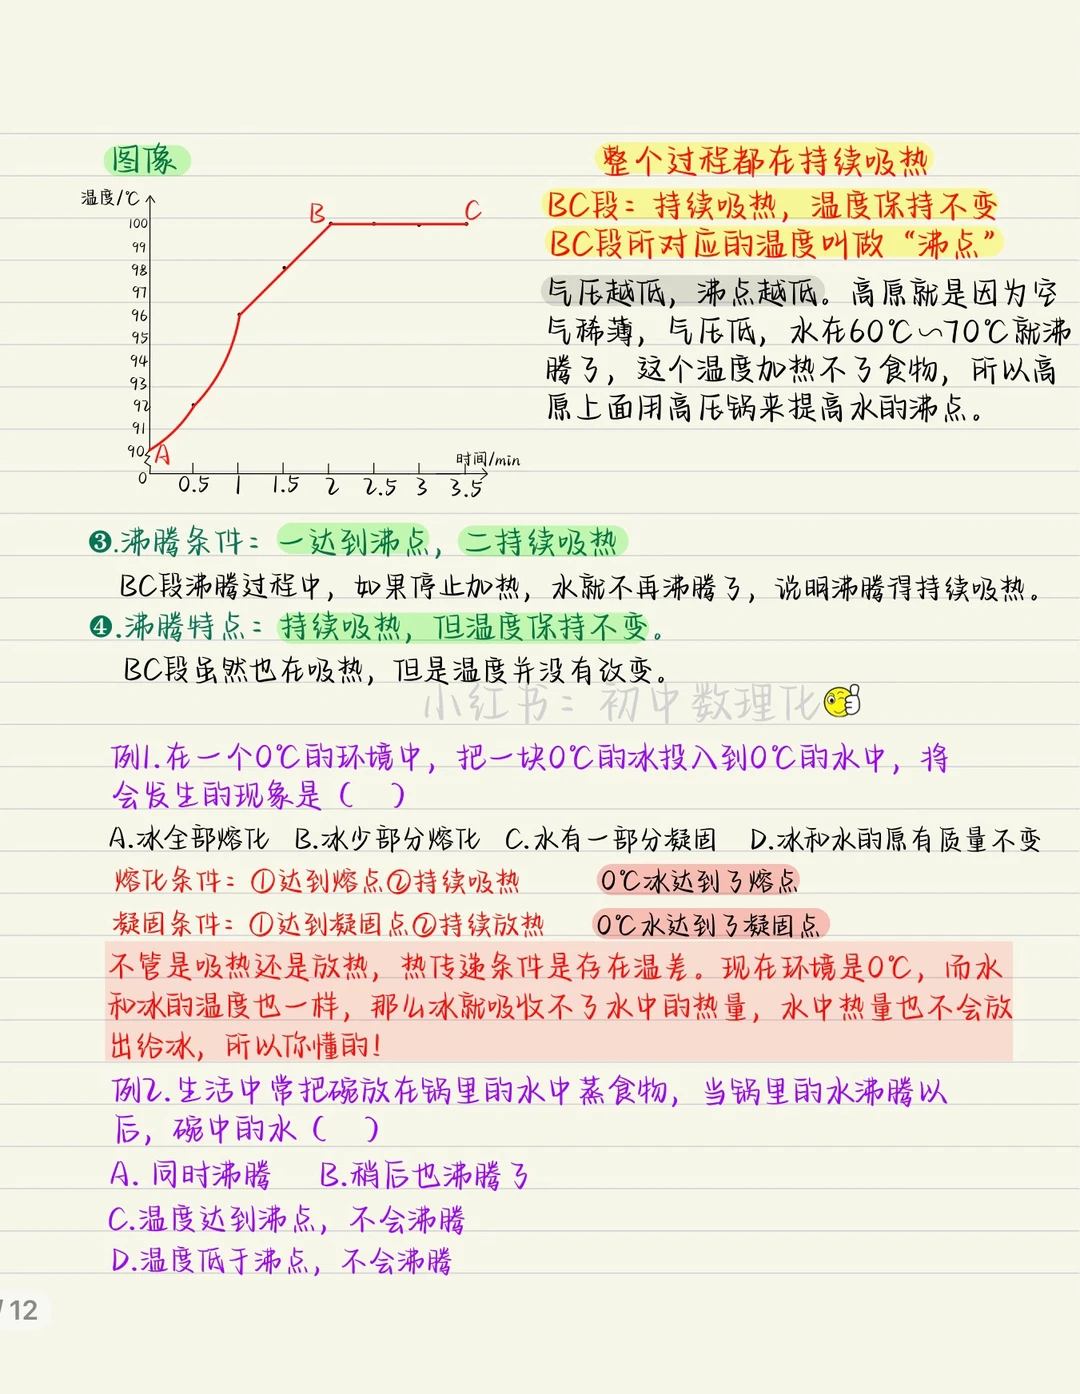 图像
温度/℃
100
99
98
97
96
95
94
93
92
91
90
0
A
B
C
0.5 1 1.5 2 2.5 3 3.5
时间/min
整个过程都在持续吸热
BC段：持续吸热，温度保持不变
BC段所对应的温度叫做“沸点”
气压越低，沸点越低。高原就是因为空
气稀薄，气压低，水在60℃~70℃就沸
腾了，这个温度加热不了食物，所以高
原上面用高压锅来提高水的沸点。
❸.沸腾条件：一达到沸点，二持续吸热
BC段沸腾过程中，如果停止加热，水就不再沸腾了，说明沸腾得持续吸热。
❹.沸腾特点：持续吸热，但温度保持不变。
BC段虽然也在吸热，但是温度并没有改变。
小红书：初中数理化
例1.在一个0℃的环境中，把一块0℃的冰投入到0℃的水中，将
会发生的现象是（ ）
A.冰全部熔化 B.冰少部分熔化 C.水有一部分凝固 D.冰和水的原有质量不变
熔化条件：①达到熔点②持续吸热 0℃冰达到了熔点
凝固条件：①达到凝固点②持续放热 0℃水达到了凝固点
不管是吸热还是放热，热传递条件是存在温差。现在环境是0℃，而水
和冰的温度也一样，那么冰就吸收不了水中的热量，水中热量也不会放
出给冰，所以你懂的！
例2.生活中常把碗放在锅里的水中蒸食物，当锅里的水沸腾以
后，碗中的水（ ）
A. 同时沸腾 B.稍后也沸腾了
C.温度达到沸点，不会沸腾
D.温度低于沸点，不会沸腾
/12